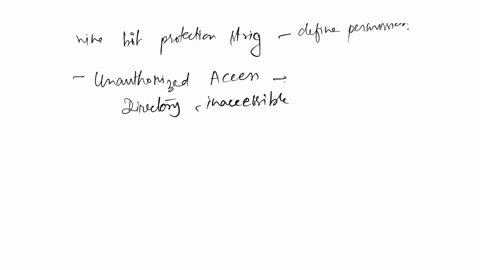 nine bit protection strig - define permission.
- Unauthorized Access -
Directory, inaccessible